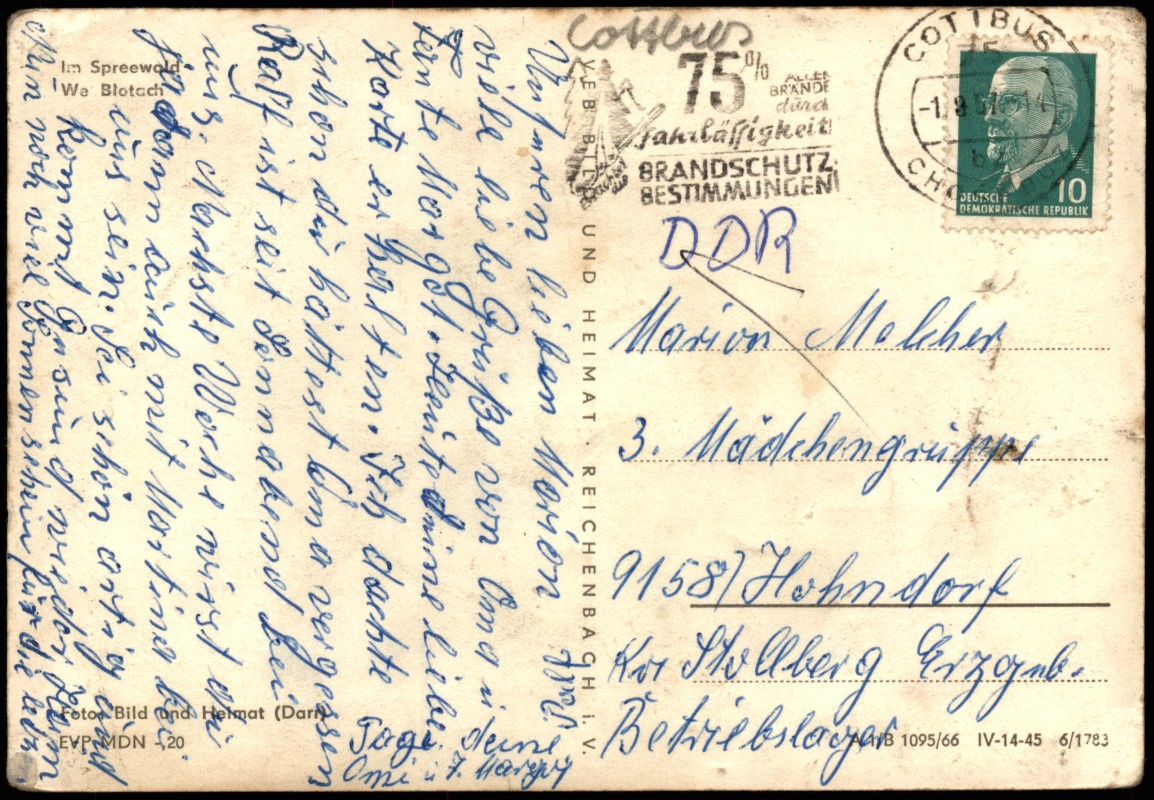 Im Spreewald
We Blotach
Cottbus
75% ALLER
BRÄNDE
durch
Fahrlässigkeit!
BRANDSCHUTZ-
BESTIMMUNGEN!
COTTBUS
75
-1.9.67-14
DEUTSCHE
DEMOKRATISCHE REPUBLIK
10
DDR
Marion Melcher
3. Mädchengruppe
9158/Hohndorf
Krs Stollberg Erzgeb.
Betriebslager
VEB BILD UND HEIMAT · REICHENBACH i. V.
Unseren lieben Marion
viele liebe Grüße von Oma u
Tante Margot. Heute deine liebe
Karte erhalten. Ich dachte
schon du hättest Oma vergessen
Ralf ist seit Sonnabend bei
uns. Nächste Woche wirst du
ja dann auch mit Martina bei
uns sein. Sei schön artig und
komm Gesund wieder.
Nun noch viel Sonnenschein für die letz.
Tage. deine
Omi u. T. Margot
Foto: Bild und Heimat (Darr)
EVP MDN -,20
A 1/B 1095/66 IV-14-45 6/1783